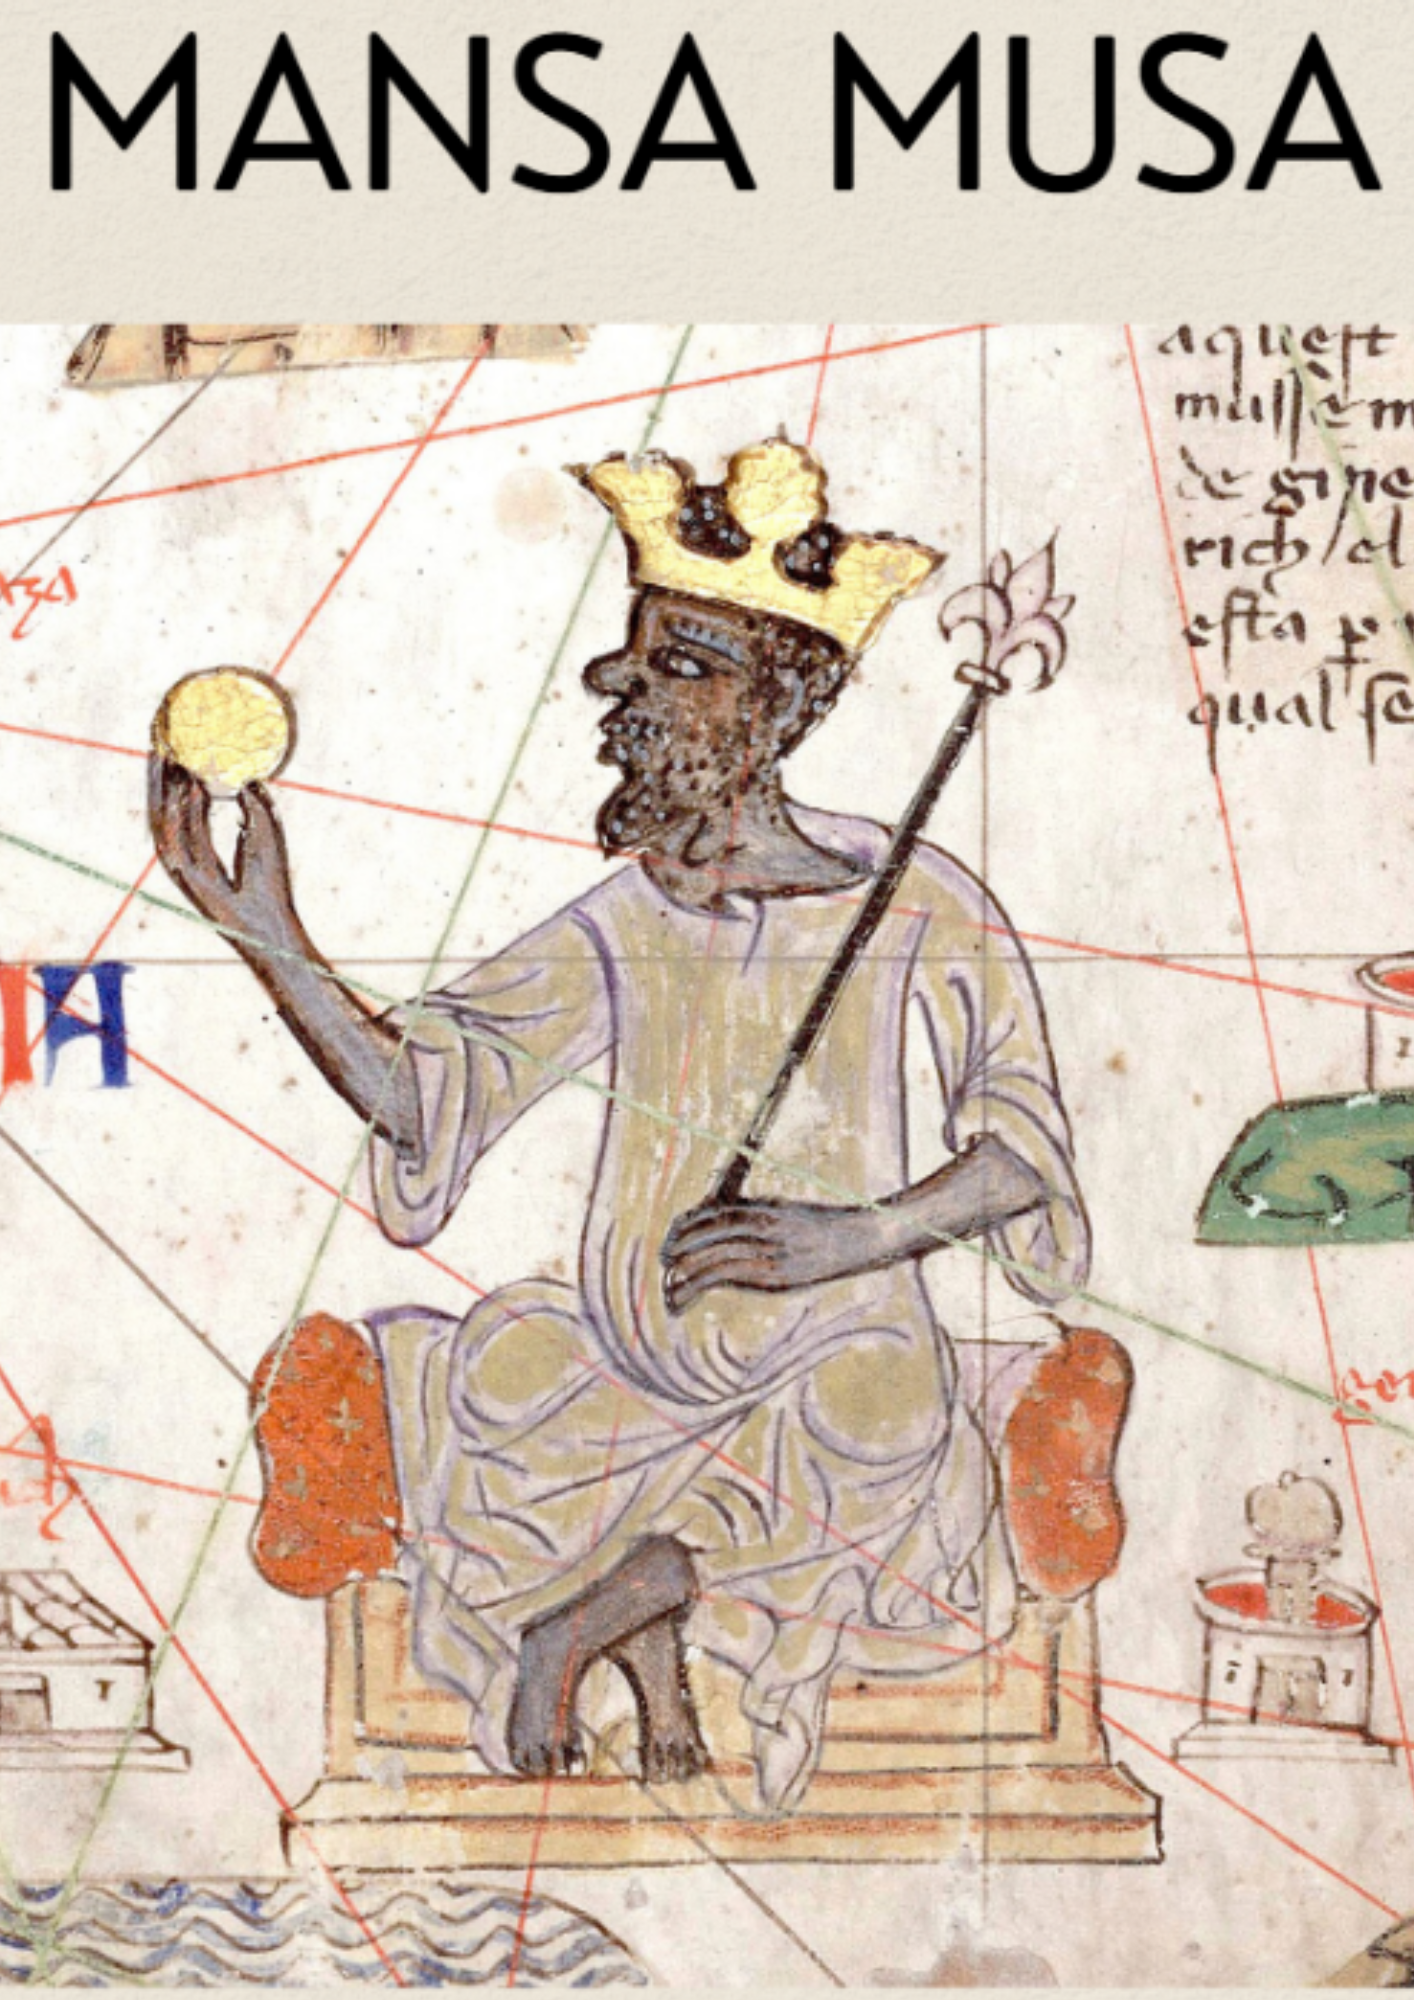 MANSA MUSA
aquest
musse m
de gine
rich el
esta p
qual se